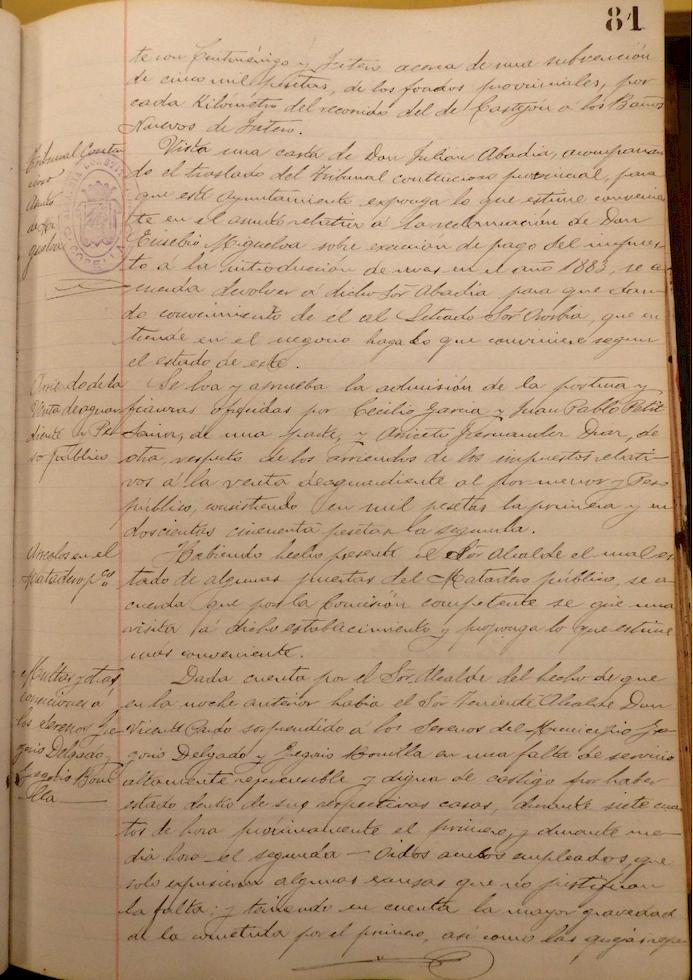 81
te con Cintruénigo y Fitero acerca de una subvención
de cinco mil pesetas, de los fondos provinciales, por
cada Kilómetro del recorrido del de Castejón a los Baños
Nuevos de Fitero.
Tribunal Conten
cioso
Asunto
Vista una carta de Don Julian Abadia, acompañan
do el traslado del tribunal contencioso provincial, para
que este Ayuntamiento exponga lo que estime convenien
te en el asunto relativo á la reclamación de Don
Eusebio sobre exencion de pago del impues
to á la introducción de uvas en el año 1883, se a
cuerda devolver á dicho Sor Abadia para que dan
do conocimiento de el al Letrado Sor que en
tiende en el negocio haga lo que conviniere segun
el estado de este.
Arriendo de la
Venta de aguar
diente y Pe
so público
Se lva y aprueba la admisión de la postura y
fianzas ofrecidas por Cecilio Garcia y Juan Pablo Petit
de una parte, y Aniceto Fernandez Diaz, de
otra, respecto de los arriendos de los impuestos relati-
vos á la venta de aguardiente al por menor y Peso
público, consistiendo en mil pesetas la primera y en
doscientas cincuenta pesetas la segunda.
Arreglos en el
Matadero pco
Habiendo hecho presente el Sor Alcalde el mal es
tado de algunas puertas del Matadero público, se a
cuerda que por la Comisión competente se gire una
visita á dicho establecimiento y proponga lo que estime
mas conveniente.
Multas y
á
los Serenos Gre
gorio Delgado,
Gregorio Boni
lla
Dada cuenta por el Sor Alcalde del hecho de que
en la noche anterior habia el Sor Teniente Alcalde Don
Vicente sorprendido á los Serenos del Municipio Gre-
gorio Delgado y Gregorio Bonilla en una falta de servicio
altamente reprensible y digna de castigo por haber
estado dentro de sus respectivas casas, durante siete cuar
tos de hora próximamente el primero, y durante me-
dia hora el segundo - Oidos ambos empleados, que
solo expusieron algunas excusas que no justifican
la falta: y teniendo en cuenta la mayor gravedad
de la cometida por el primero, asi como las quejas repe